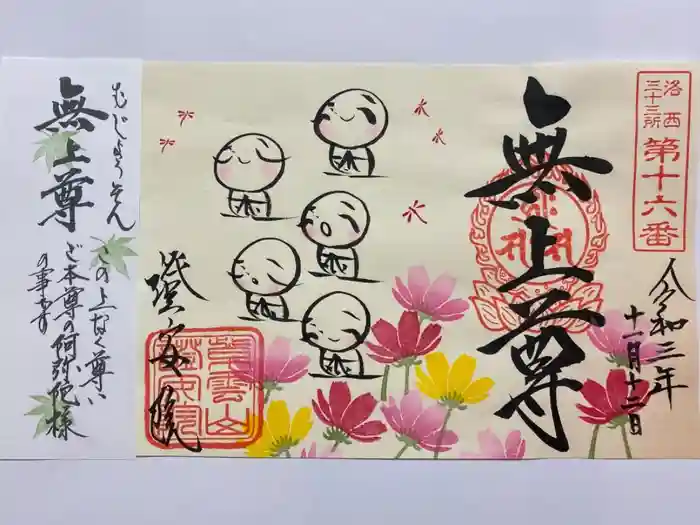 洛西
三十三所
第十六番
令和三年
十一月十二日
無上尊
蓮安院
むじょうそん
無上尊
この上なく尊い
ご本尊の阿弥陀様
の事です